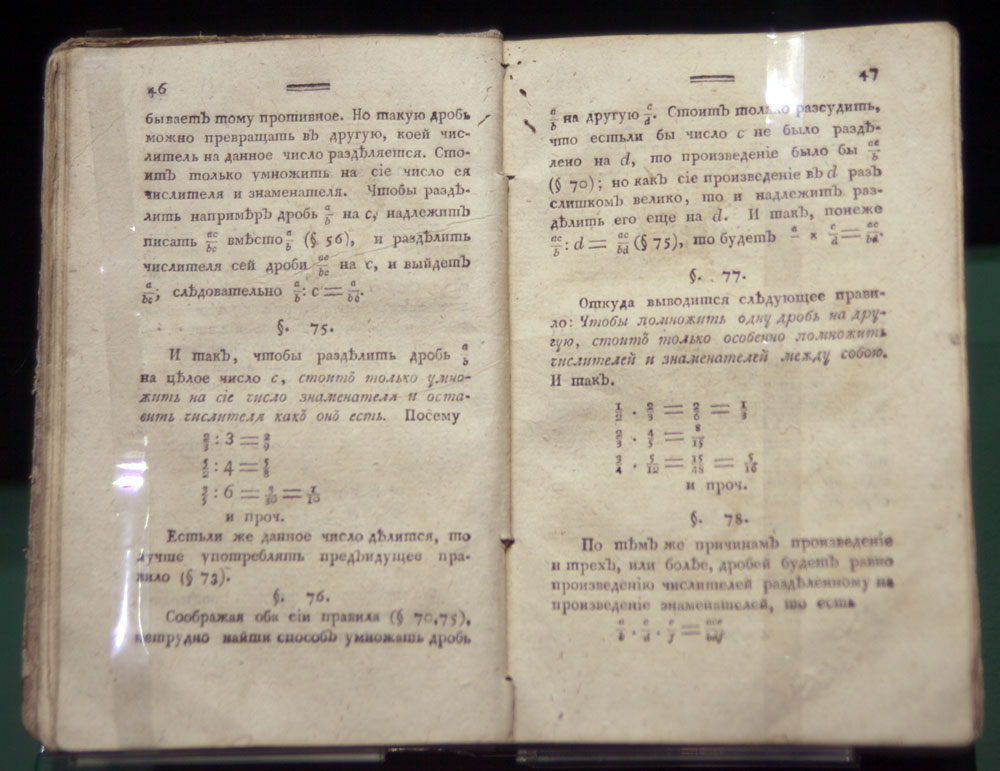 46
бываетъ тому противное. Но такую дробь
можно превращать въ другую, коей чис-
литель на данное число раздѣляется. Сто-
итъ только умножить на сіе число ея
числителя и знаменателя. Чтобы раздѣ-
лить напримѣръ дробь a/b на c, надлежитъ
писать ac/bc вмѣсто a/b (§. 56), и раздѣлить
числителя сей дроби ac/bc на c, и выйдетъ
a/bc; слѣдовательно a/b : c = a/bc.
§. 75.
И такъ, чтобы раздѣлить дробь a/b
на цѣлое число c, стоитъ только умно-
жить на сіе число знаменателя и оста-
вить числителя какъ онъ есть. Посему
2/3 : 3 = 2/9
5/2 : 4 = 5/8
3/5 : 6 = 3/30 = 1/10
и проч.
Естьли же данное число дѣлится, то
лучше употреблять предъидущее пра-
вило (§ 73).
§. 76.
Соображая оба сіи правила (§ 70,75),
нетрудно найти способъ умножать дробь
47
a/b на другую c/d. Стоитъ только разсудить,
что естьли бы число c не было раздѣ-
лено на d, то произведеніе было бы ac/b
(§ 70); но какъ сіе произведеніе въ d разъ
слишкомъ велико, то и надлежитъ раз-
дѣлить его еще на d. И такъ, понеже
ac/b : d = ac/bd (§ 75), то будетъ a/b × c/d = ac/bd.
§. 77.
Откуда выводится слѣдующее прави-
ло: Чтобы помножить одну дробь на дру-
гую, стоитъ только особенно помножить
числителей и знаменателей между собою.
И такъ.
1/2 . 2/3 = 2/6 = 1/3
2/3 . 4/5 = 8/15
3/4 . 5/12 = 15/48 = 5/16
и проч.
§. 78.
По тѣмъ же причинамъ произведеніе
и трехъ, или болѣе, дробей будетъ равно
произведенію числителей раздѣленному на
произведеніе знаменателей, то есть